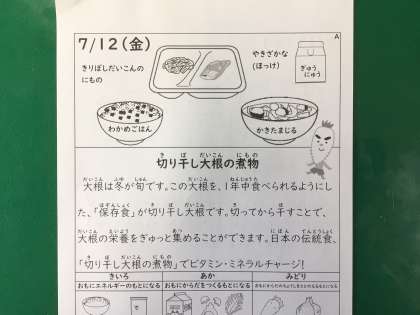 7/12(金)
A
きりぼしだいこんの
にもの
やきざかな
(ほっけ)
ぎゅう
にゅう
わかめごはん
かきたまじる
切り干し大根の煮物
大根は冬が旬です。この大根を、1年中食べられるようにし
た、「保存食」が切り干し大根です。切ってから干すことで、
大根の栄養をぎゅっと集めることができます。日本の伝統食、
「切り干し大根の煮物」でビタミン・ミネラルチャージ!
きいろ あか みどり
おもにエネルギーのもとになる おもにからだをつくるもとになる おもにからだのちょうしをととのえるもとになる